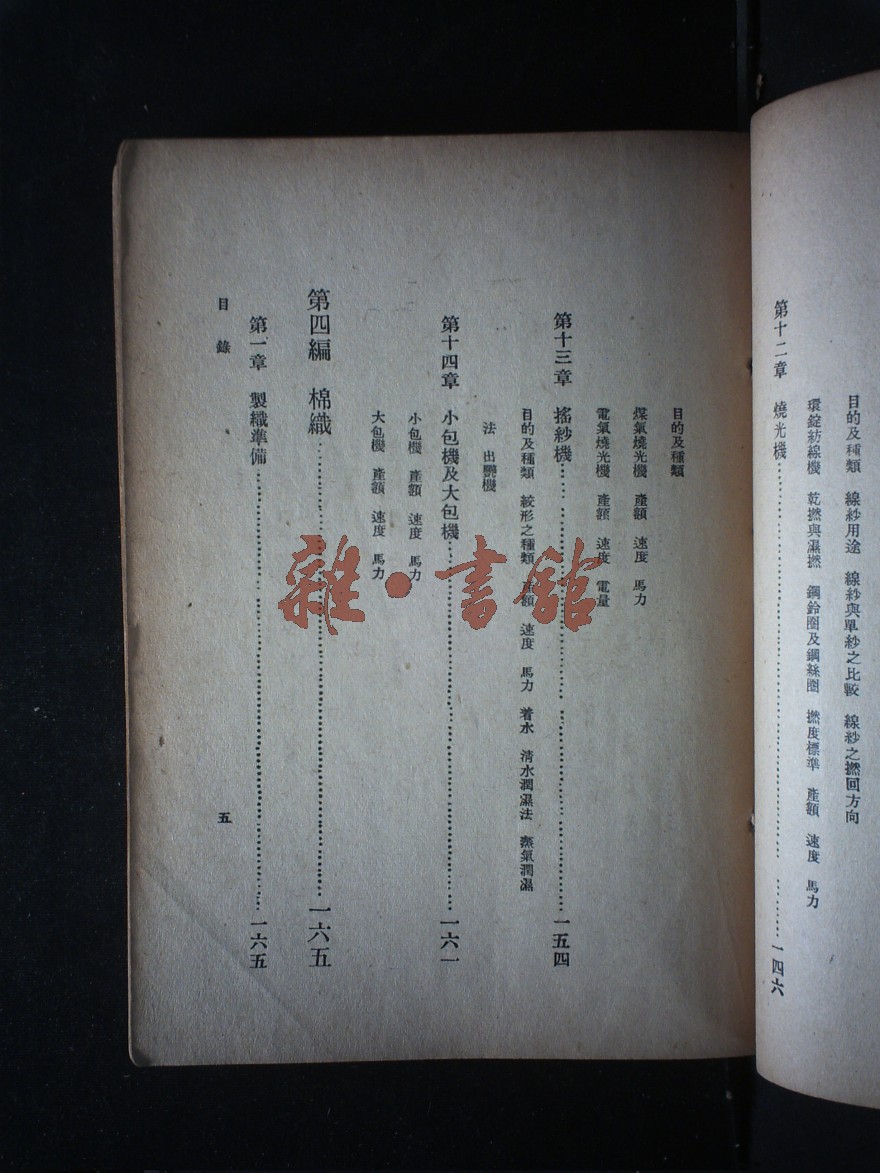 目的及種類　線紗用途　線紗與單紗之比較　線紗之撚回方向
環錠紡線機　乾撚與濕撚　鋼鈴圈及鋼絲圈　撚度標準　產額　速度　馬力
第十二章　燒光機……一四六
目的及種類
煤氣燒光機　產額　速度　馬力
電氣燒光機　產額　速度　電量
第十三章　搖紗機……一五四
目的及種類　絞形之種類　產額　速度　馬力　着水　清水潤濕法　蒸氣潤濕
法　出艷機
第十四章　小包機及大包機……一六一
小包機　產額　速度　馬力
大包機　產額　速度　馬力
第四編　棉織……一六五
第一章　製織準備……一六五
目錄　五
雜·書館